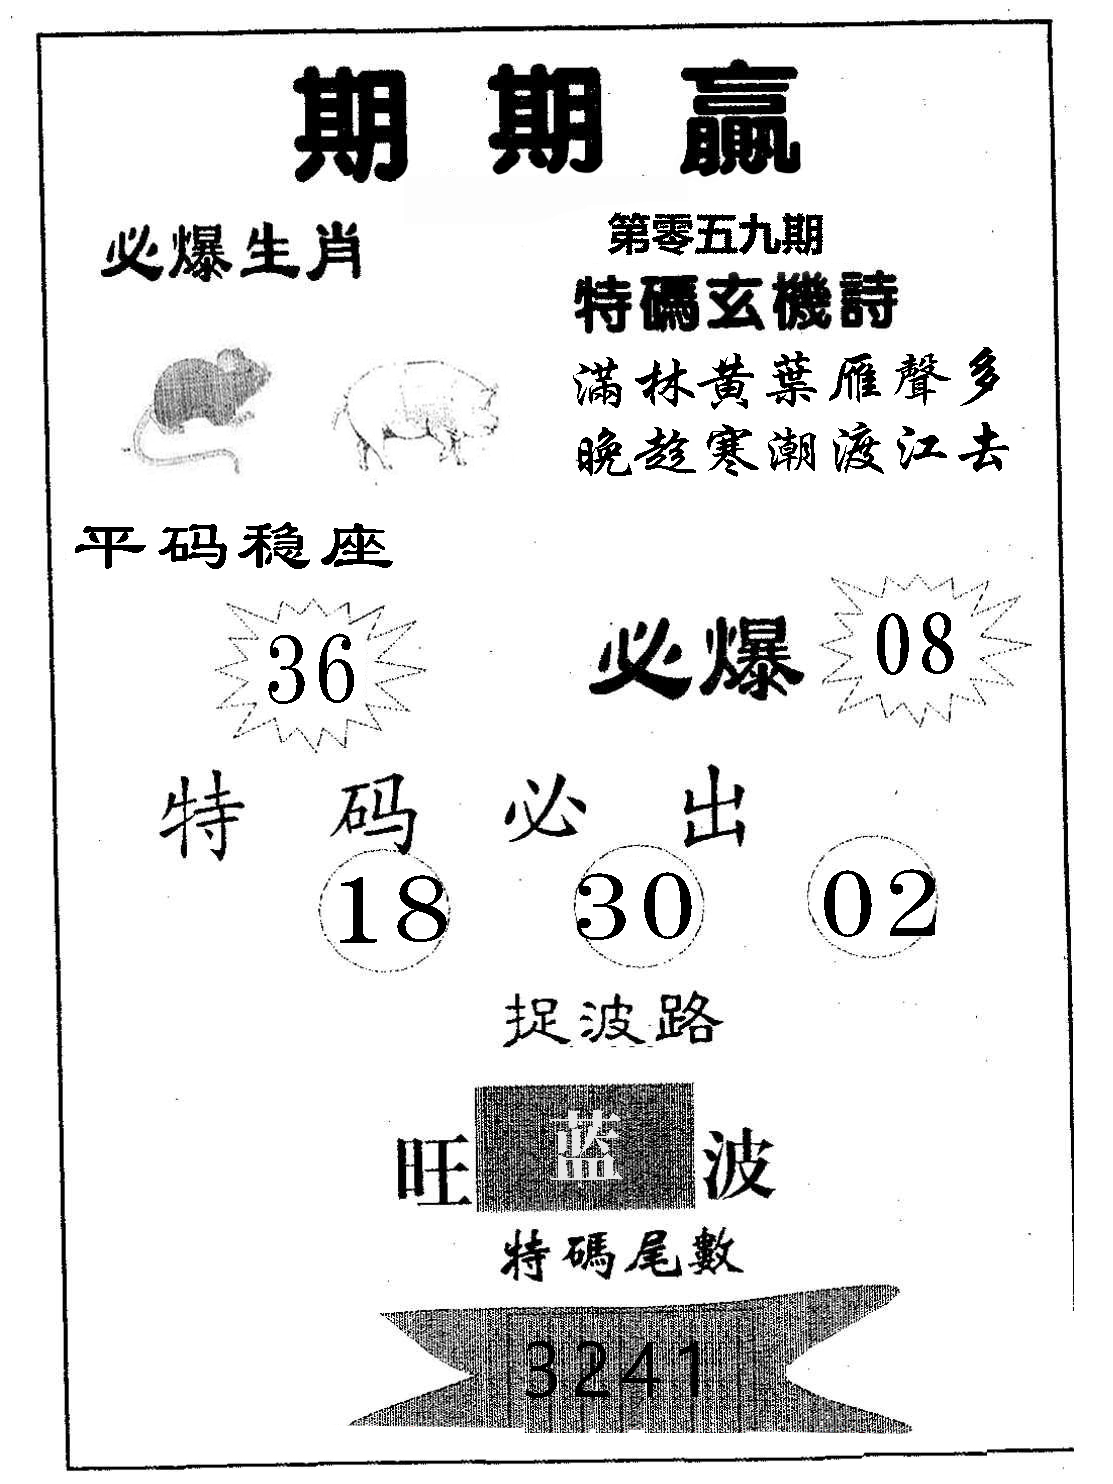 期期贏
必爆生肖
第零五九期
特碼玄機詩
滿林黃葉雁聲多
晚趁寒潮渡江去
平码稳座
36
必爆 08
特码必出
18 30 02
捉波路
旺 蓝 波
特碼尾數
3241